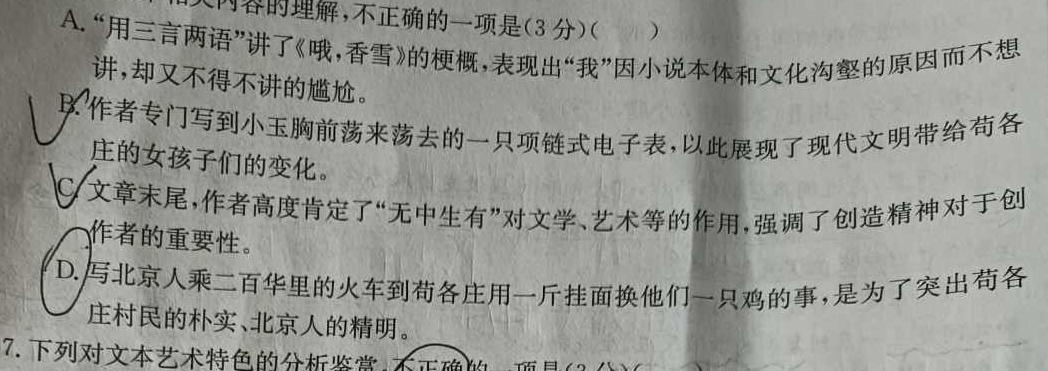 内容的理解,不正确的一项是(3分)(　　)
A.“用三言两语”讲了《哦,香雪》的梗概,表现出“我”因小说本体和文化沟壑的原因而不想
讲,却又不得不讲的尴尬。
B.作者专门写到小玉胸前荡来荡去的一只项链式电子表,以此展现了现代文明带给苟各
庄的女孩子们的变化。
C.文章末尾,作者高度肯定了“无中生有”对文学、艺术等的作用,强调了创造精神对于创
作者的重要性。
D.写北京人乘二百华里的火车到苟各庄用一斤挂面换他们一只鸡的事,是为了突出苟各
庄村民的朴实、北京人的精明。
7.下列对文本艺术特色的分析鉴赏,不正确的一项是(3分)(　　)